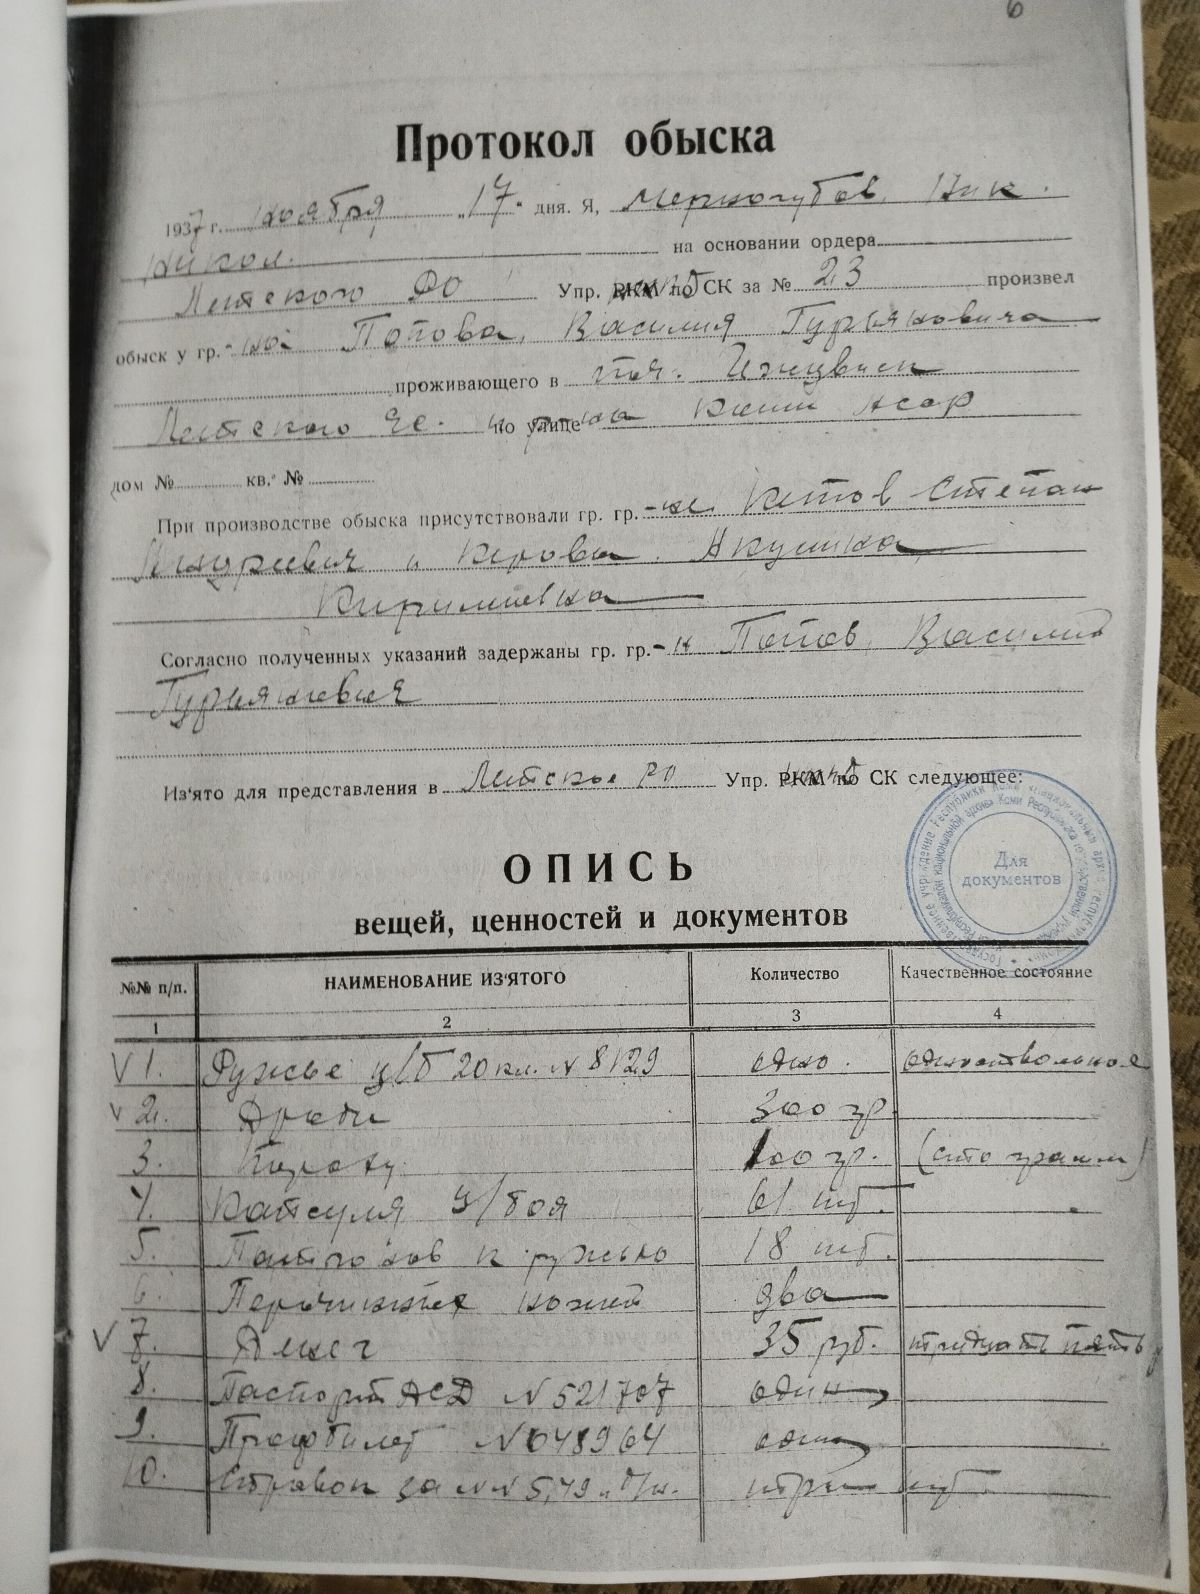 6
Протокол обыска
1937 г. Ноября „17" дня. Я, Черногубов, Ник.
Никол. на основании ордера
Летского РО Упр. РКМ НКВД по СК за № 23 произвел
обыск у гр.-на Попова, Василия Гурьяновича
проживающего в
Летского по улице Коми АССР
дом № кв. №
При производстве обыска присутствовали гр. гр.-не Китов Степан
Андреевич и Акулина
Кириловна
Согласно полученных указаний задержаны гр. гр.-н Попов, Василий
Гурьянович
Из'ято для представления в Летское РО Упр. РКМ НКВД по СК следующее:
Для
документов
ОПИСЬ
вещей, ценностей и документов
№№ п/п. НАИМЕНОВАНИЕ ИЗ'ЯТОГО Количество Качественное состояние
1 2 3 4
V 1. Ружье ц/б 20 кл. N 8129 одно. одноствольное
V 2. Дроби 300 гр
3. Пороху 100 гр. (сто грамм)
4. Капсуля ц/боя 61 шт.
5. Патронов к ружью 18 шт.
6. Перочинные ножей два
V 7. Денег 35 руб. тридцать пять
8. Паспорт N 521707 один
9. Профбилет N 048964 один
10. Справок за NN 5, 49 и б/н. три шт.